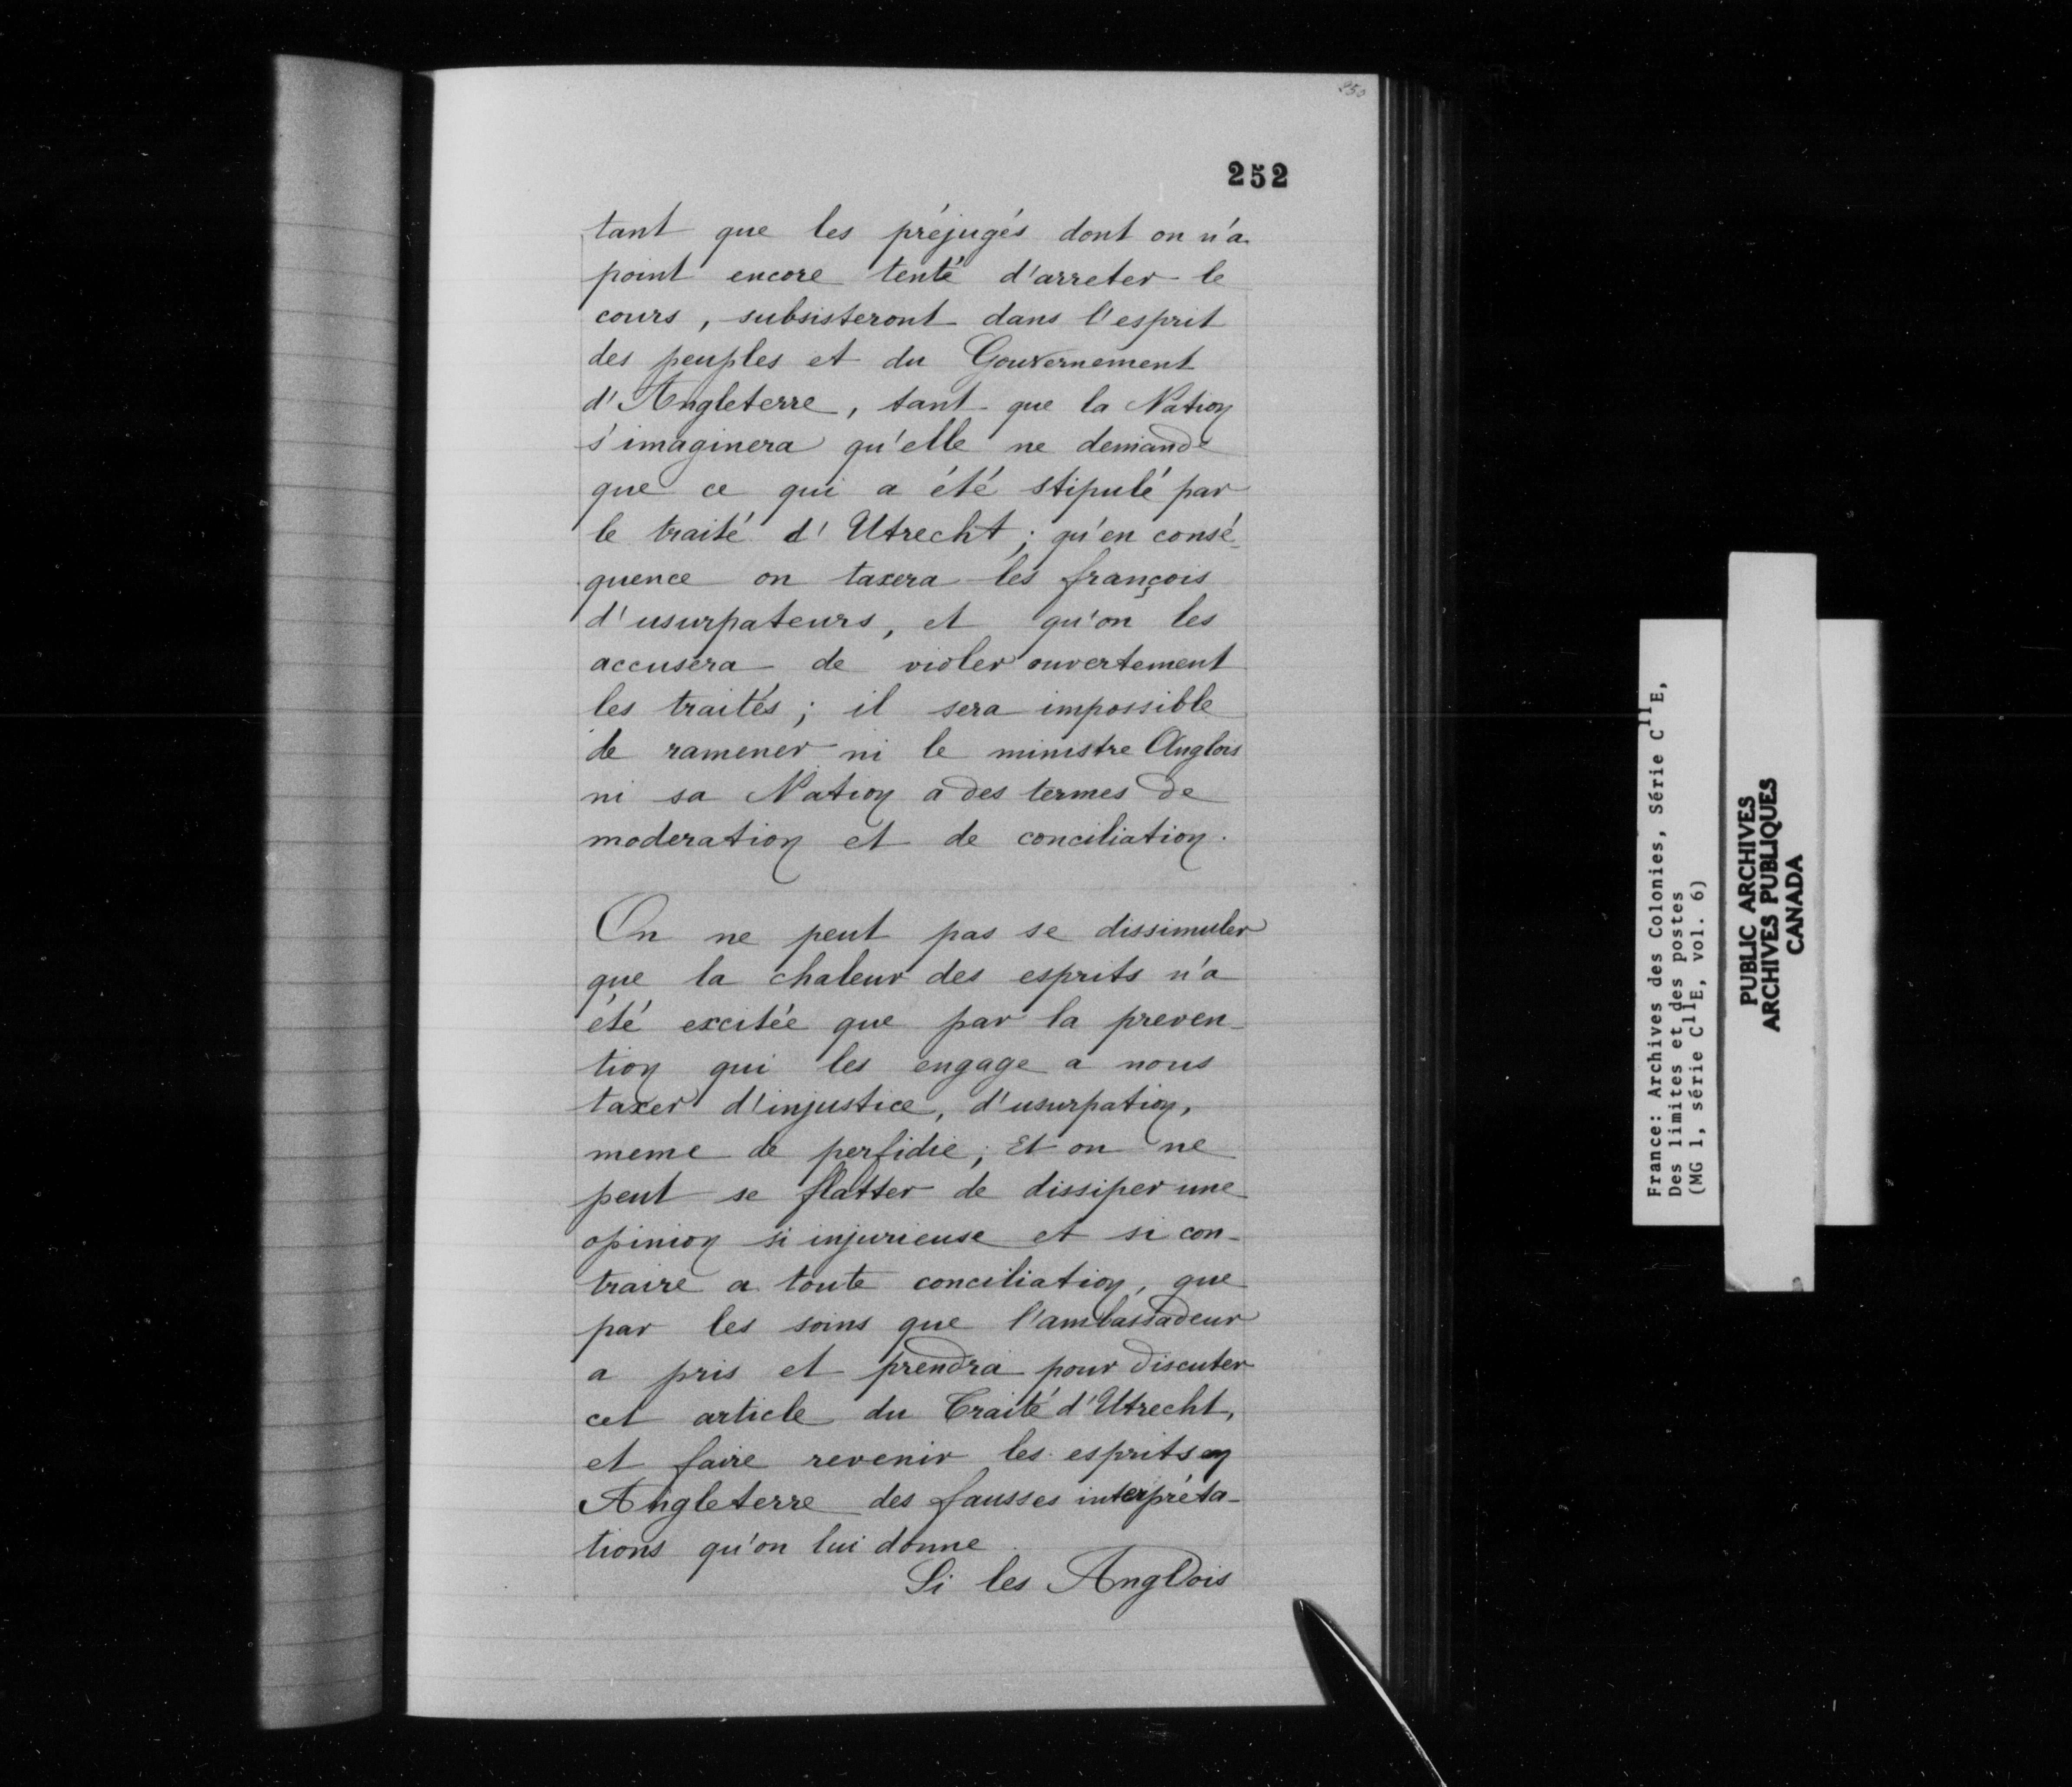 250
252
tant que les préjugés dont on n'a
point encore tenté d'arreter le
cours, subsisteront dans l'esprit
des peuples et du Gouvernement
d'Angleterre, tant que la Nation
s'imaginera qu'elle ne demande
que ce qui a été stipulé par
le traité d'Utrecht; qu'en consé-
quence on taxera les françois
d'usurpateurs, et qu'on les
accusera de violer ouvertement
les traités; il sera impossible
de ramener ni le ministre Anglois
ni sa Nation a des termes de
moderation et de conciliation.
On ne peut pas se dissimuler
que la chaleur des esprits n'a
été excitée que par la preven-
tion qui les engage a nous
taxer d'injustice, d'usurpation,
meme de perfidie; Et on ne
peut se flatter de dissiper une
opinion si injurieuse et si con-
traire a toute conciliation, que
par les soins que l'ambassadeur
a pris et prendra pour discuter
cet article du Traité d'Utrecht,
et faire revenir les esprits en
Angleterre des fausses interpréta-
tions qu'on lui donne.
Si les Anglois
France: Archives des Colonies, Série C11E,
Des limites et des postes
(MG 1, série C11E, vol. 6)
PUBLIC ARCHIVES
ARCHIVES PUBLIQUES
CANADA